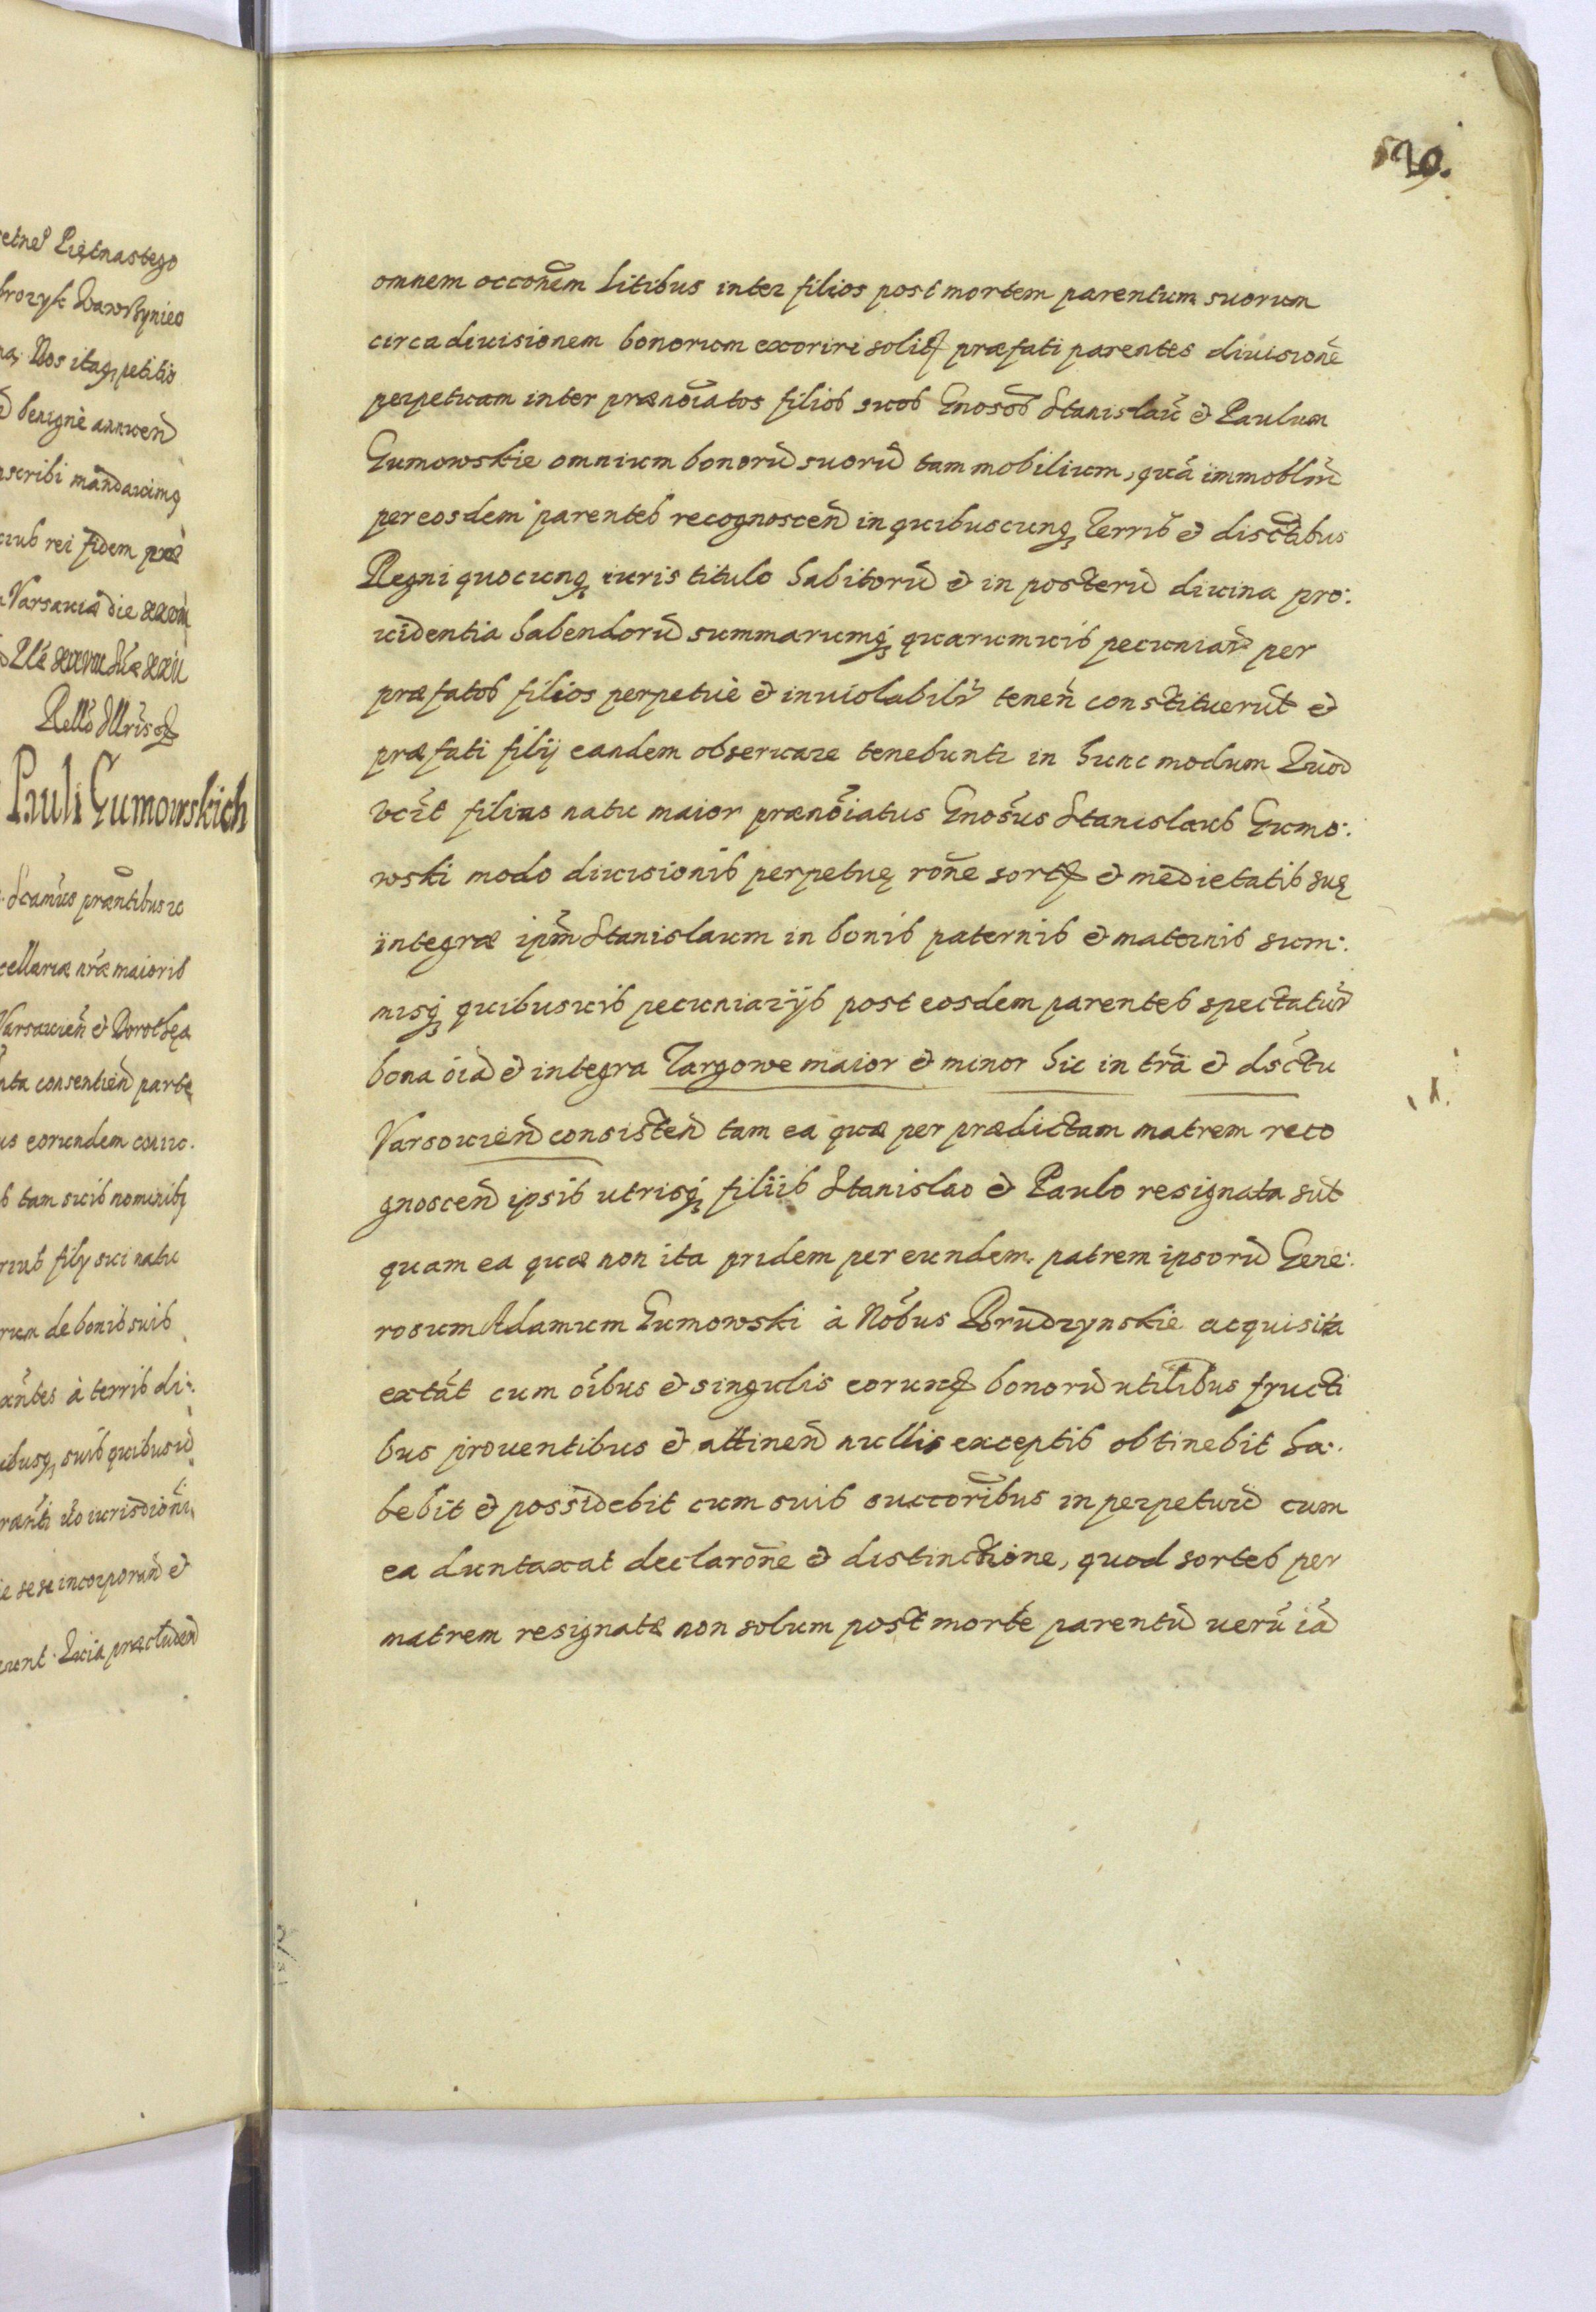 etne Piętnastego
brozyk Wawrzyniec
na. Nos itaqꝫ petitio
benignè annuend
nscribi mandauimꝰ
cuius rei fidem præ
Varsauiæ die
Pauli Gumowskich
Scimus præntibus
cellariæ nr̃æ maioris
Varsauien̄ et Dorothęa
nta consentien parte
us eorundem conuo.
s tam suis nominibꝫ
filij sui natu
rum de bonis suis
antes à terris di:
ibusqꝫ suis quibusuis
iurisdic̄oni
ie sese incorporan et
runt. Quia præcluden
529.
omnem occōnem litibus inter filios post mortem parentum suorum
circa diuisionem bonorum exoriri solitꝭ præfati parentes diuisionē
perpetuam inter prænōiatos filios suos Gnosos Stanislaū et Paulum
Gumowskie omnium bonorū suorū tam mobilium, quā immobliū
per eosdem parentes recognoscen̄ in quibuscunqꝫ Terris et disctibus
Regni quocunqꝫ iuris titulo habitorū et in posterū diuina pro:
uidentia habendorū summarumqꝫ quarumuis pecuniar̄ per
præfatos filios perpetuè et inuiolabilr̄ tenen̄ constituerūt et
præfati filij eandem obseruare tenebuntr in hunc modum Quod
vēit filius natu maior prænōiatus Gnosus Stanislaus Gumo:
wski modo diuisionis perpetuę rōne sortꝭ et medietatis suę
integræ ipm̄ Stanislaum in bonis paternis et maternis sum:
misqꝫ quibusuis pecuniarijs post eosdem parentes spectatur̄
bona oīa et integra Targowe maior et minor hic in trā et dsctu
Varsouien̄ consisten̄ tam ea quæ per prædictam matrem reco
gnoscen̄ ipsis utrisqꝫ filiis Stanislao et Paulo resignata sūt
quam ea quæ non ita pridem per eundem patrem ipsorū Gene:
rosum Adamum Gumowski à Nobus Brudzynskie acquisita
extāt cum oībus et singulis eorundꝭ bonorū utilibus fructi
bus prouentibus et attinen̄ nullis exceptis obtinebit ha:
bebit et possidebit cum suis succoribus in perpetuū cum
ea duntaxat declarōne et distinctione, quod sortes per
matrem resignatæ non solum post mortē parentū uerū iā